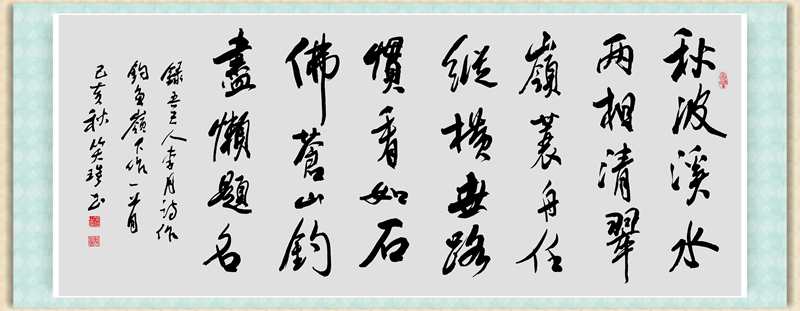 秋波溪水
两相清翠
嶺蓑舟任
縱横世路
慣看如石
佛蒼山釣
盡懶題名
錄吾人李月詩作
釣魚嶺下作一首
己亥秋笑书